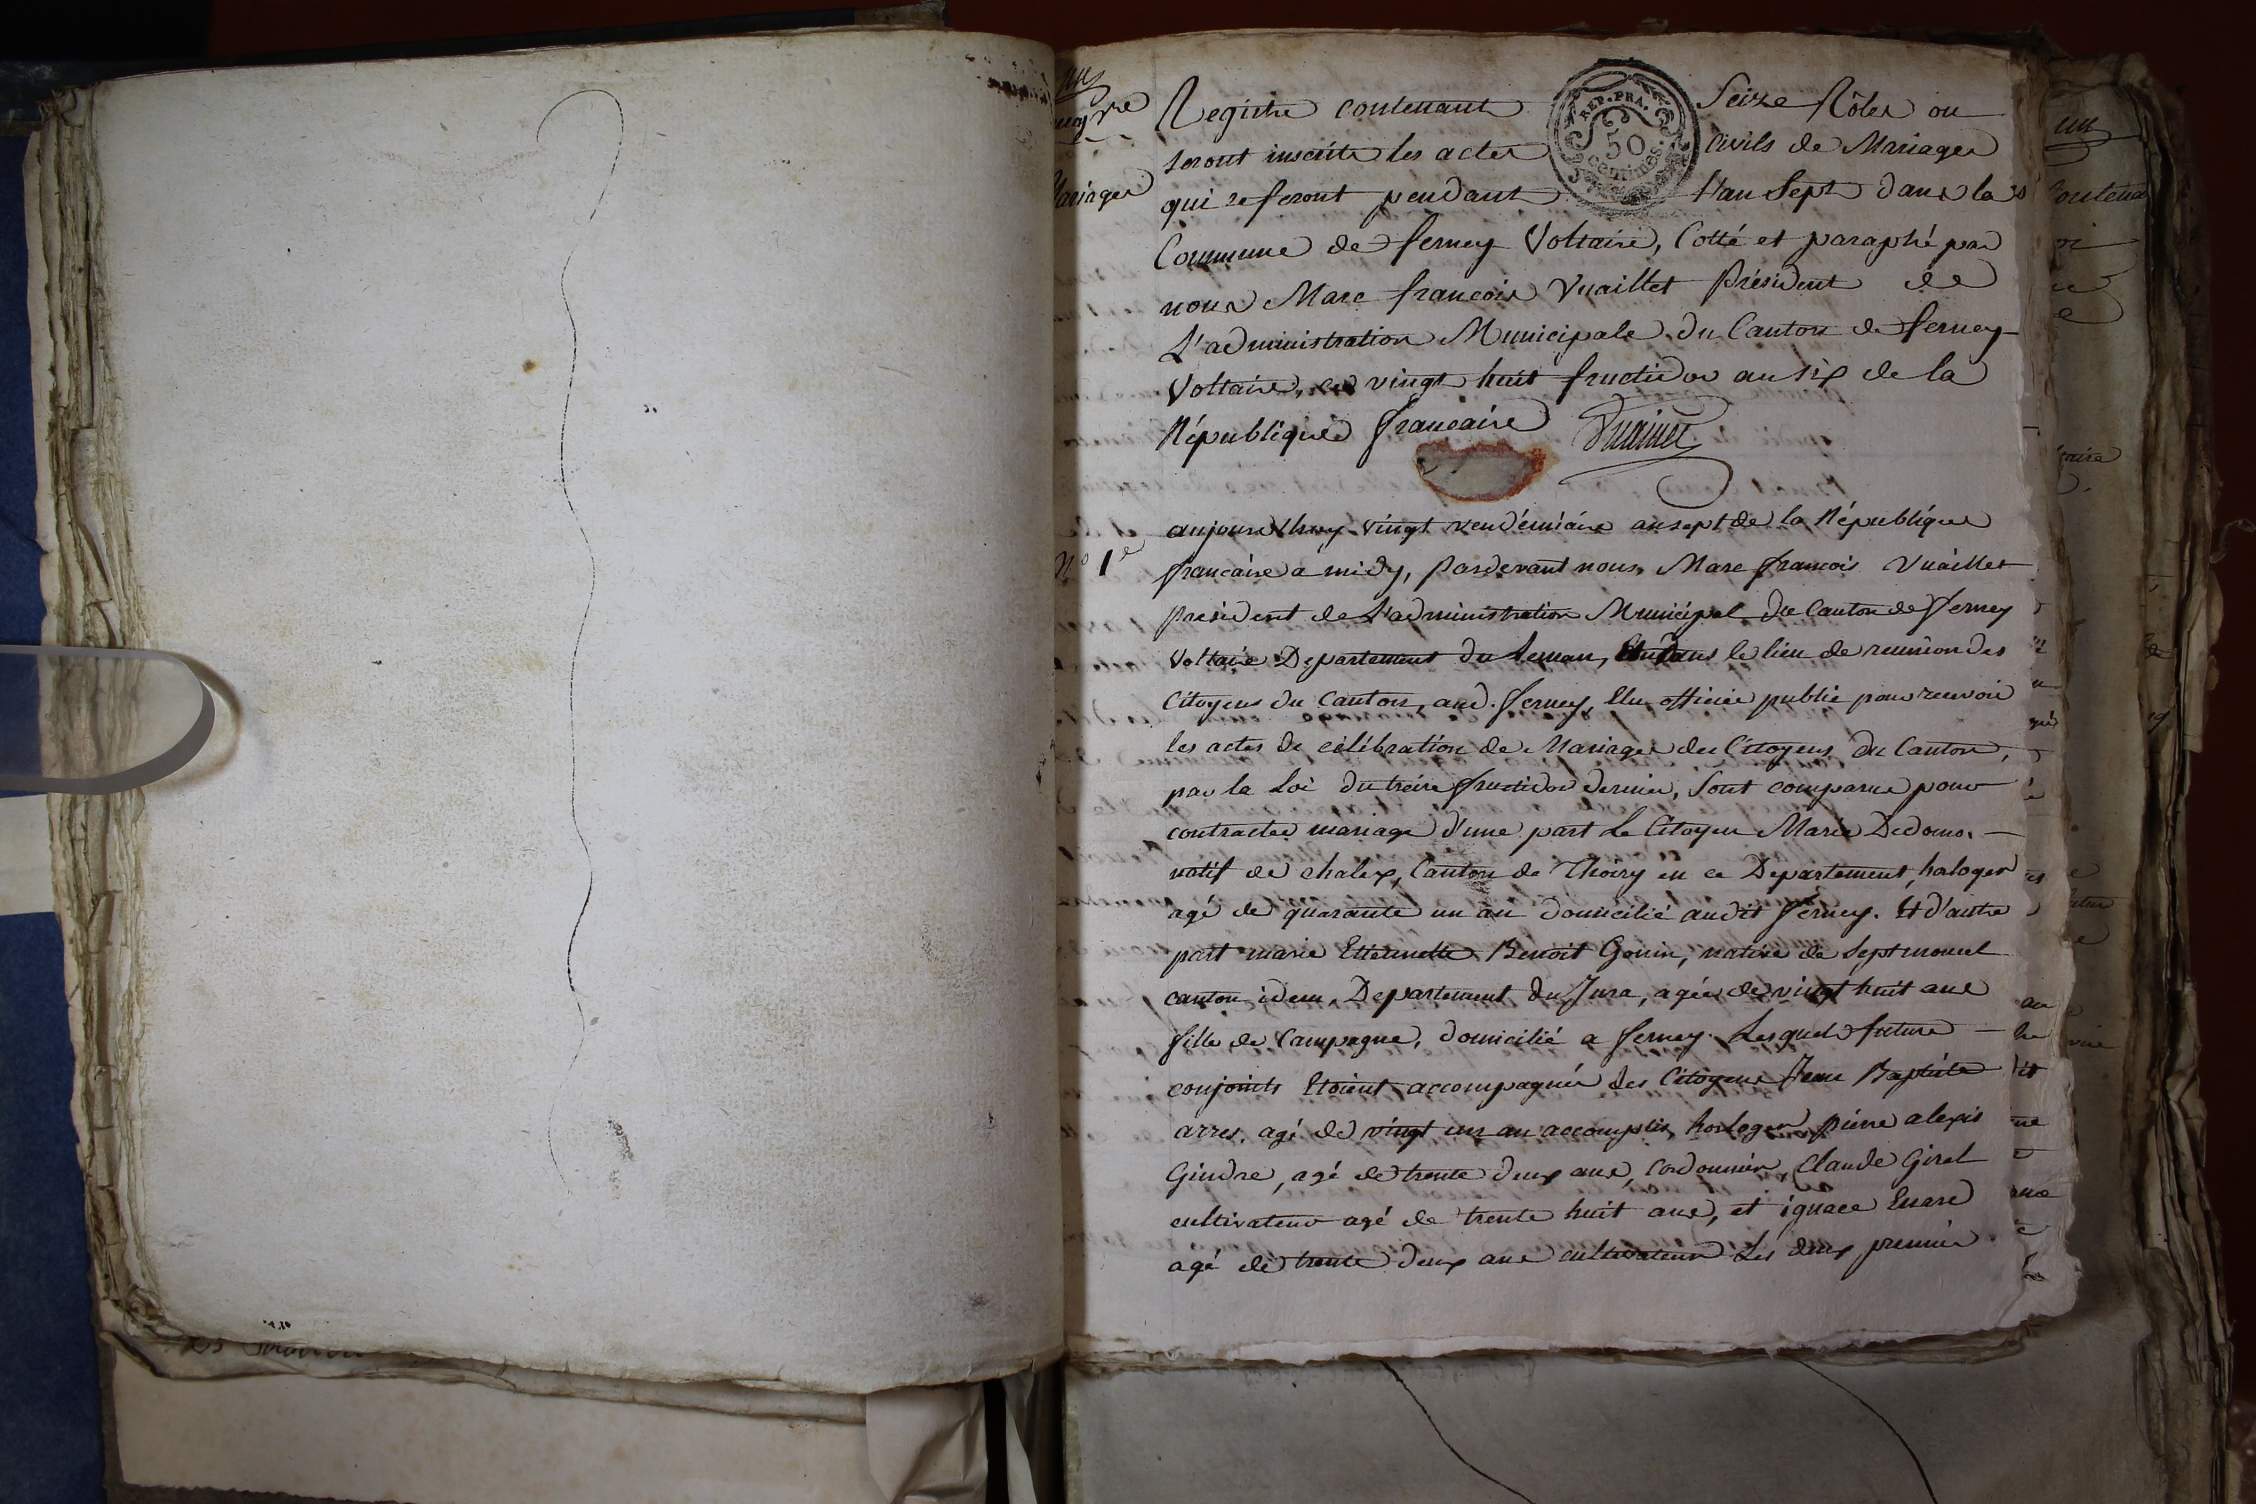 Mariages
Registre contenant Seize Rôles ou
REP. FRA.
50
centimes.
seront inscrits les actes Civils de Mariages
qui se feront pendant l'an Sept dans la
Commune de ferney Voltaire, Cotté et paraphé par
nous Marc françois Vuaillet Président de
L'administration Municipale du Canton de ferney
Voltaire, ce vingt huit fructidor an six de la
République françaire
Vuaillet
N° 1er
aujourdhuy vingt vendémiaire an sept de la République
françaire a midy, pardevant nous Marc françois Vuaillet
président de L'administration Municipal du Canton de ferney
Voltaire Departement du Leman, dans le lieu de reunion des
Citoyens du Canton, aud. ferney, Elu officier public pour recevoir
les actes de célébration de Mariages des Citoyens du Canton,
par la Loi du treize fructidor dernier, Sont comparus pour
contracter mariage d'une part Le Citoyen Marie Dedomo,
natif de chalex, Canton de Thoiry en ce Departement, horloger
agé de quarante un an domicilié audit ferney. Et d'autre
part marie Ettiennette Benoit Gonin, native de Septmoncel
canton idem, Departement du Jura, agée de vingt huit ans
fille de Campagne, domicilié a ferney. Lesquels futurs
conjoints Etoient accompagnés des Citoyens Jean Baptiste
arres, agé de vingt un an accomplis, horloger, pierre alexis
Gindre, agé de trente deux ans, cordonnier, Claude Girel
cultivateur agé de trente huit ans, et ignace
agé de trente deux ans cultivateur Les deux premier